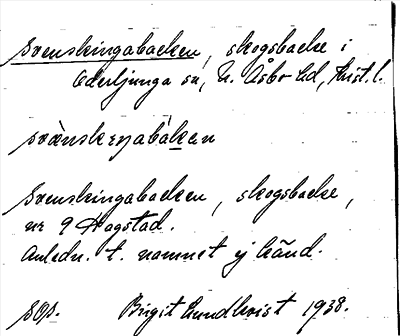 Svenskingabacken, skogsbacke i
Oderljunga sn, N. Åsbo hd, Krist. l.
svänskeŋabàkan
Svenskingabacken, skogsbacke,
nr 9 Hagstad.
Anledn. t. namnet ej känd.
SOA. Birgit Lundkvist 1938.